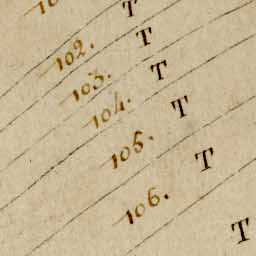 102. T
103. T
104. T
105. T
106. T
T